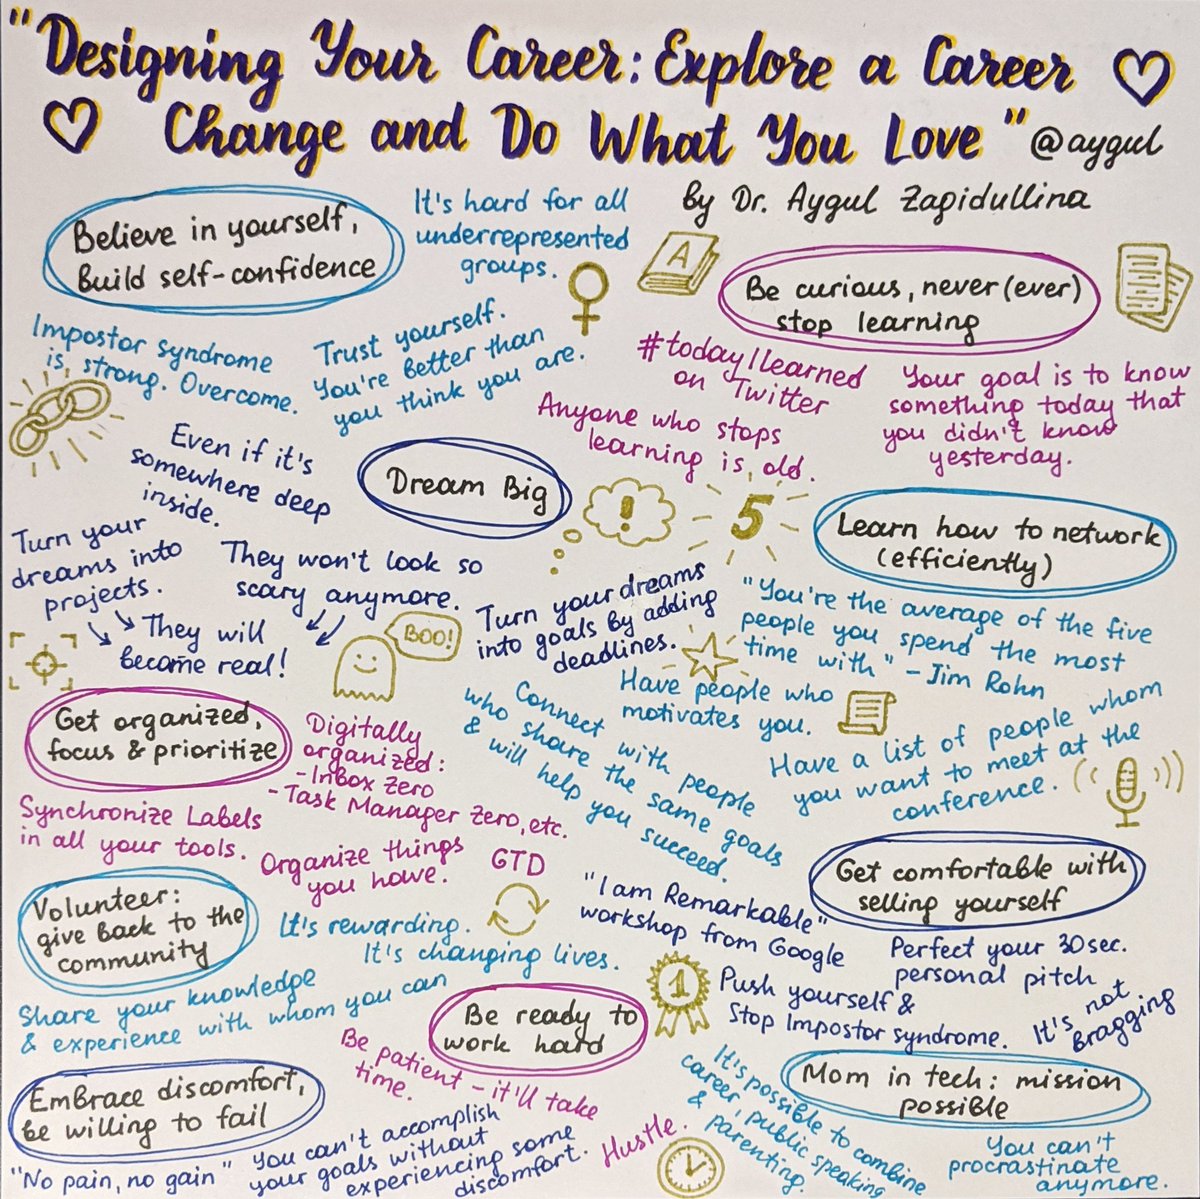 "Designing Your Career: Explore a Career
Change and Do What You Love"
@aygul
by Dr. Aygul Zapidullina
Believe in yourself,
Build self-confidence
It's hard for all
underrepresented
groups.
Impostor syndrome
is strong. Overcome.
Trust yourself.
You're better than
you think you are.
A
Be curious, never (ever)
stop learning
#todayIlearned
on Twitter
Your goal is to know
something today that
you didn't know
yesterday.
Anyone who stops
learning is old.
Dream Big
!
Even if it's
somewhere deep
inside.
Turn your
dreams into
projects.
They will
become real!
They won't look so
scary anymore.
BOO!
Turn your dreams
into goals by adding
deadlines.
5
Learn how to network
(efficiently)
"You're the average of the five
people you spend the most
time with" - Jim Rohn
Have people who
motivates you.
Connect with people
who share the same goals
& will help you succeed.
Have a list of people whom
you want to meet at the
conference.
Get organized,
focus & prioritize
Digitally
organized:
- Inbox zero
- Task Manager zero, etc.
Synchronize Labels
in all your tools.
Organize things
you howe.
GTD
Get comfortable with
selling yourself
"I am Remarkable"
workshop from Google
Perfect your 30sec.
personal pitch
1
Push yourself &
Stop Impostor syndrome.
It's not
Bragging
Volunteer:
give back to the
community
It's rewarding.
It's changing lives.
Share your knowledge
& experience with whom you can
Be ready to
work hard
Be patient - it'll take
time.
Hustle.
Embrace discomfort,
be willing to fail
"No pain, no gain"
You can't accomplish
your goals without
experiencing some
discomfort.
Mom in tech: mission
possible
It's possible to combine
career, public speaking
& parenting.
You can't
procrastinate
anymore.